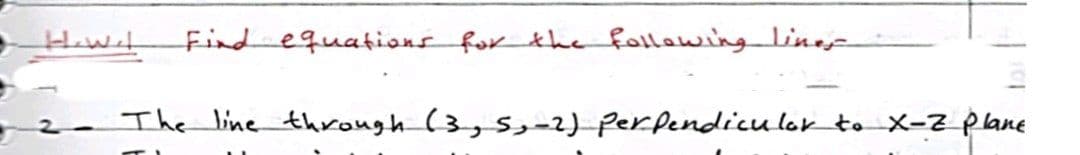 H.W.1 Find equations for the following lines
2- The line through (3, 5, -2) perpendicular to x-z plane